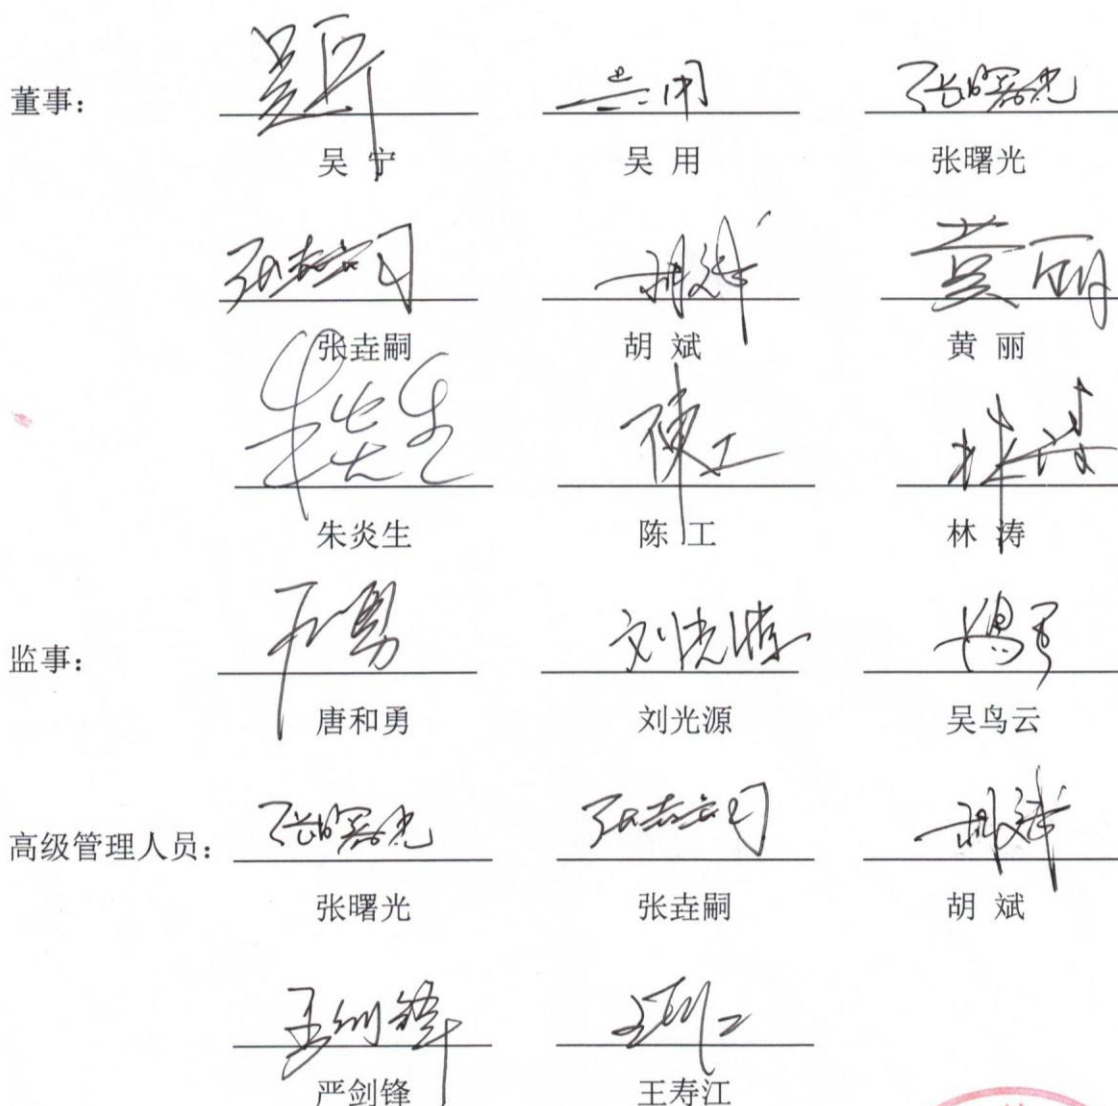 董事:
吴 宁 吴 用 张曙光
张垚嗣 胡 斌 黄 丽
朱炎生 陈 工 林 涛
监事:
唐和勇 刘光源 吴鸟云
高级管理人员:
张曙光 张垚嗣 胡 斌
严剑锋 王寿江